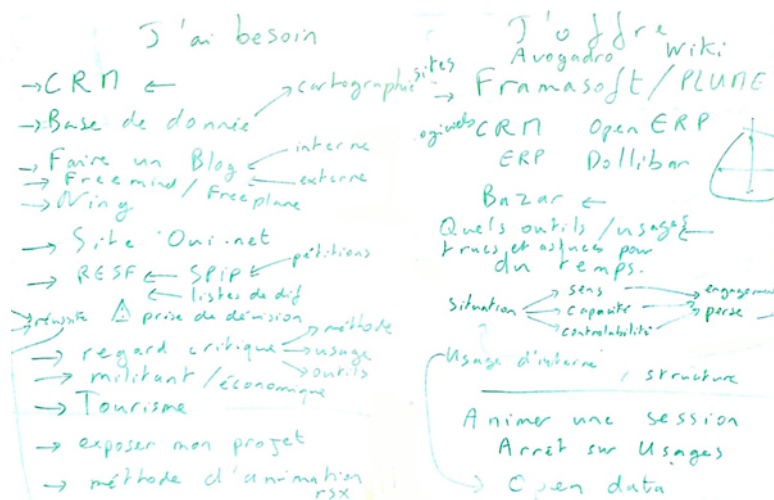 J'ai besoin
→ CRM ←
cartographie
→ Base de donnée
→ Faire un Blog
interne
→ Freemind / Freeplane
externe
→ Ning
→ Site Oui.net
→ RESF ← SPIP
pétitions
listes de dif
réussite ⚠ prise de décision
→ regard critique
→ méthode
→ usage
→ outils
→ militant / économique
→ Tourisme
→ exposer mon projet
→ méthode d'animation
rsx
J'offre
Avogadro Wiki
sites
→ Framasoft / PLUME
ogiciels CRM Open ERP
ERP Dollibar
Bazar ←
Quels outils / usages
trucs et astuces pour
du temps.
Situation
sens
capacité
controlabilité
engagement
perse
Usage d'interne
/ structure
Animer une session
Arrêt sur Usages
→ Open data